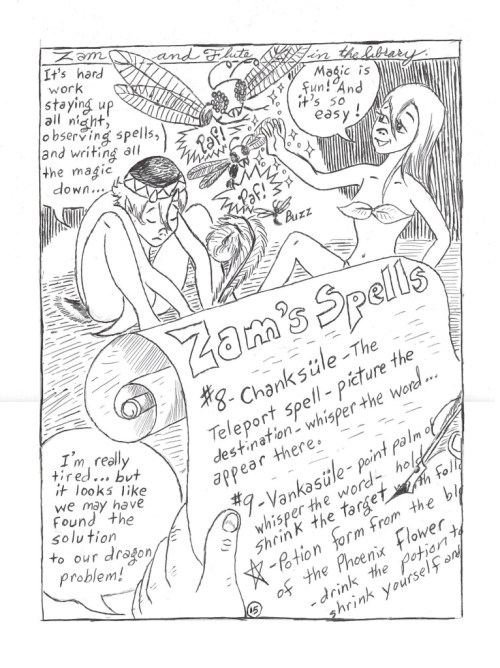 Zam and Flute in the library.
It's hard
work
staying up
all night,
observing spells,
and writing all
the magic
down...
Paf!
Paf!
Buzz
Magic is
fun! And
it's so
easy!
Zam's Spells
#8- Chanksüle - The
Teleport spell - picture the
destination - whisper the word...
appear there.
#9- Vankasüle - point palm of
whisper the word - hold
shrink the target
☆ -Potion form from the
of the Phoenix Flower
- drink the potion to
shrink yourself and
I'm really
tired... but
it looks like
we may have
found the
solution
to our dragon
problem!
15